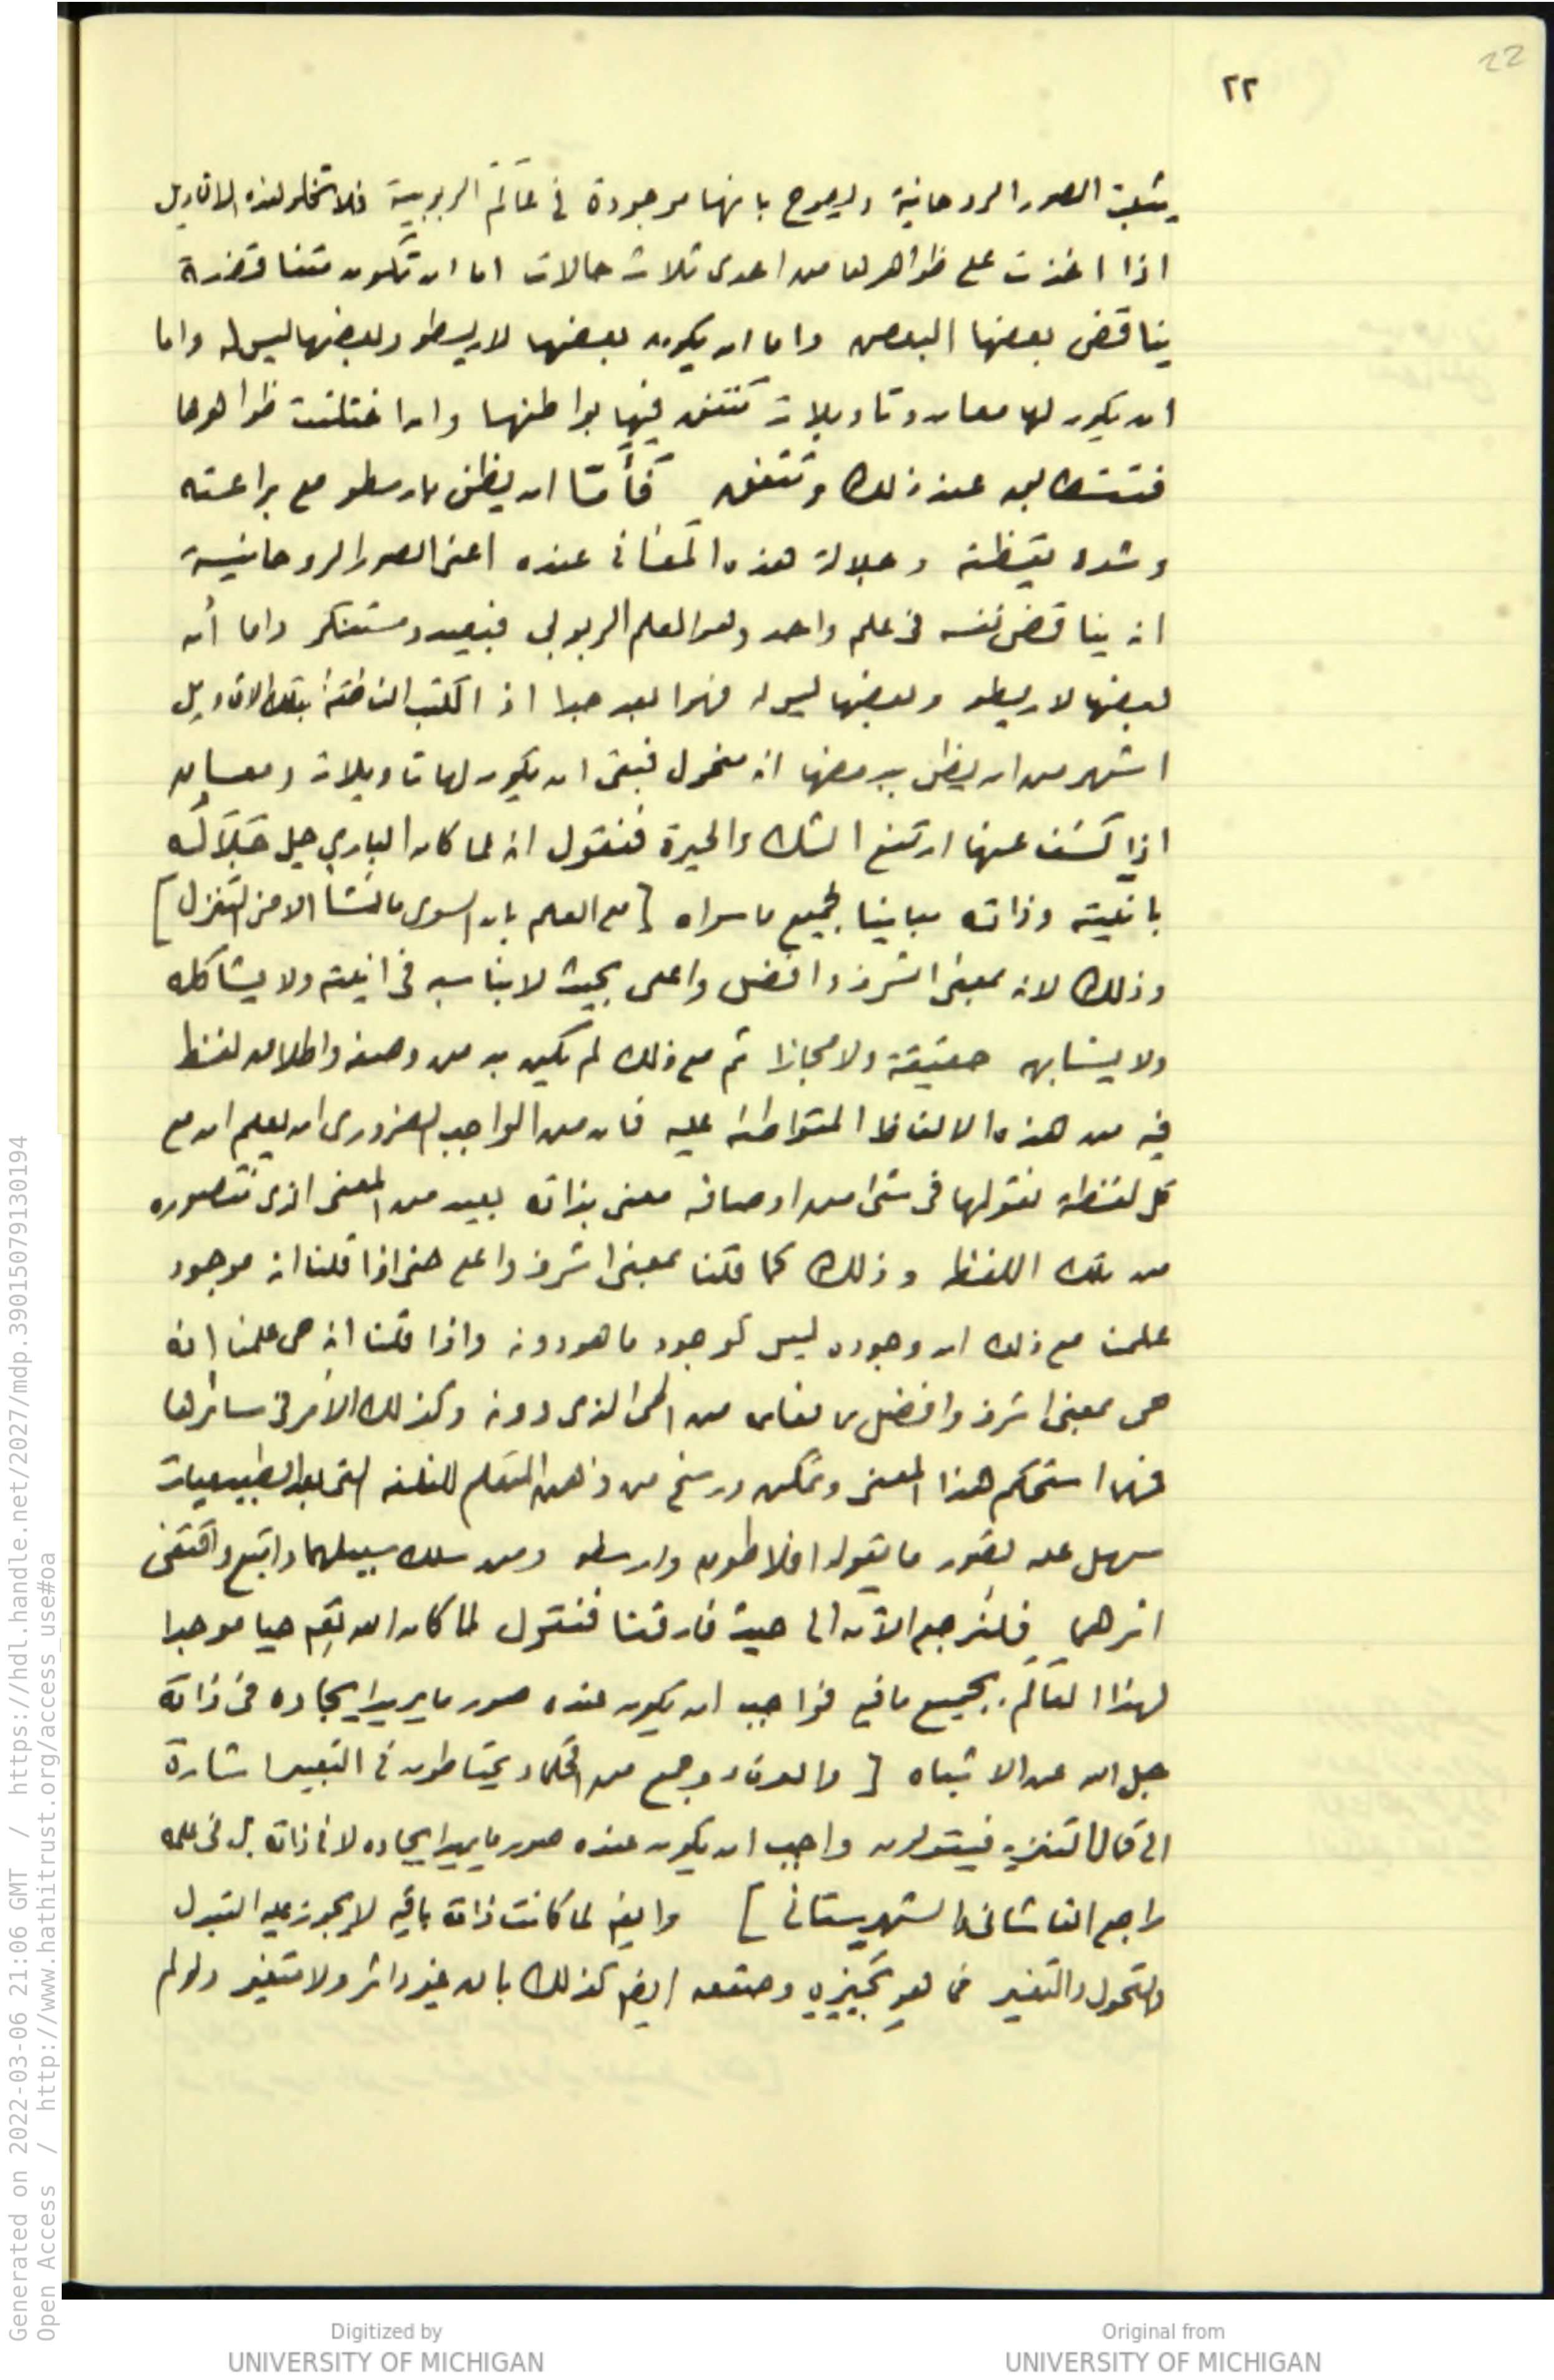 22
٢٢
يثبت الصور الروحانية ويصرح بانها موجودة في عَالَم الربوبية فلا تخلو هذه الاقاويل
اذا اخذت على ظواهرها من احدى ثلاث حالات اما ان تكون متناقضة
يناقض بعضها البعض واما ان يكون بعضها لارسطو وبعضها ليس له واما
ان يكون لها معان وتاويلات تتفق فيها بواطنها وان اختلفت ظواهرها
فتتطابق عند ذلك وتتفق فأمّا ان يظن بارسطو مع براعته
وشدة يقظته وجلالة هذه المعَاني عنده اعنى الصور الروحانية
انه يناقض نفسه في علم واحد وهو العلم الربوبي فبعيد ومستنكر واما أن
بعضها لارسطو وبعضها ليس له فهو ابعد جدا اذ الكتب الناطقة بتلك الاقاويل
اشهر من ان يظن ببعضها انه منحول فبقى ان يكون لها تاويلات ومعان
اذا كشف عنها ارتفع الشك والحيرة فنقول انه لما كان الباري جل جَلاَلُه
بانيته وذاته مباينا لجميع ما سواه [مع العلم بان السوى ما نشأ الا من التنزل]
وذلك لانه بمعنى اشرف وافضل واعلى بحيث لا يناسبه في انيته ولا يشاكله
ولا يشابهه حقيقة ولا مجازا ثم مع ذلك لم يكن بد من وصفه واطلاق لفظ
فيه من هذه الالفاظ المتواطئة عليه فان من الواجب الضروري ان يعلم ان مع
كل لفظة نقولها في شئ من اوصافه معنى بذاته بعيد من المعنى الذى نتصوره
من تلك اللفظة وذلك كما قلنا بمعنى اشرف واعلى حتى اذا قلنا انه موجود
علمنا مع ذلك ان وجوده ليس كوجود ما هو دونه واذا قلنا انه حى علمنا انه
حى بمعنى اشرف وافضل مما نعلمه من الحى الذى دونه وكذلك الأمر في سائرها
فمهما استحكم هذا المعنى وتمكن ورسخ من ذهن المتعلم للفلسفه التى بعد الطبيعيات
سهل عليه تصور ما يقوله افلاطون وارسطو ومن سلك سبيلهما واتبع واقتفى
اثرهما فلنرجع الآن الى حيث فارقنا فنقول لما كان الله تع حيا موجدا
لهذا العالَم بجميع ما فيه فواجب ان يكون عنده صور ما يريد ايجاده في ذاته
جل الله عن الاشباه [والعرفاء وجمع من الحكماء يحتاطون في التعبير اشارة
الى كمال التنزيه فيقولون واجب ان يكون عنده صور ما يريد ايجاده لا في ذاته بل في علمه
راجع القاشانى والشهرستانى] وايضا لما كانت ذاته باقية لا يجوز عليه التبدل
والتحول والتغير فما هو بحيّزه وصقعه ايضا كذلك باق غير داثر ولا متغير ولو لم
Generated on 2022-03-06 21:06 GMT / https://hdl.handle.net/2027/mdp.39015079130194
Open Access / http://www.hathitrust.org/access_use#oa
Digitized by
UNIVERSITY OF MICHIGAN
Original from
UNIVERSITY OF MICHIGAN